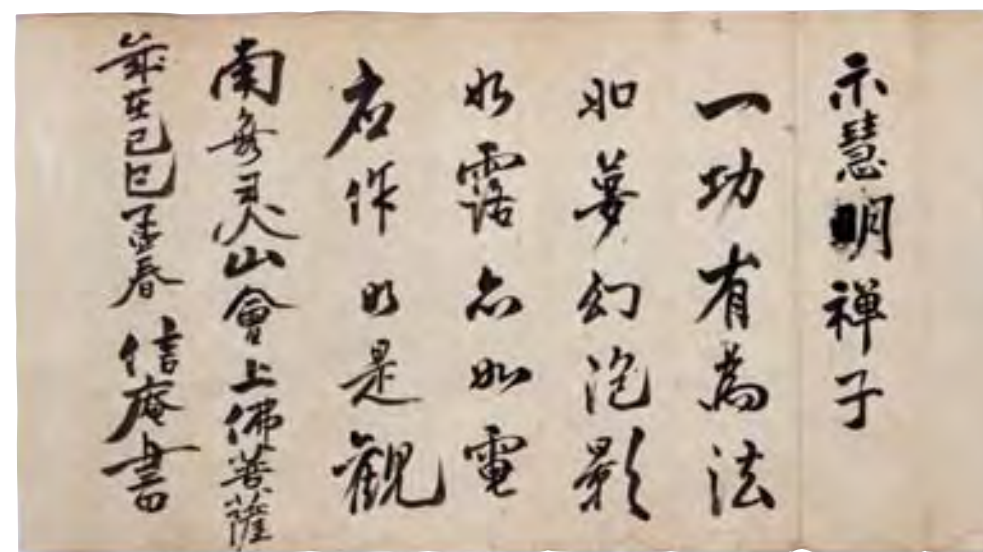 示慧明禅子
一切有為法
如夢幻泡影
如露亦如電
應作如是觀
南無灵山會上佛菩薩
歲在己巳孟春 信庵書